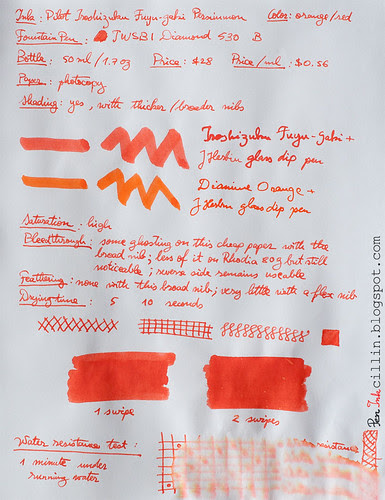 Ink: Pilot Iroshizuku Fuyu-gaki Persimmon Color: orange/red
Fountain Pen: TWSBI Diamond 530 B
Bottle: 50 ml/1.7 oz Price: $28 Price/ml: $0.56
Paper: photocopy
Shading: yes, with thicker/broader nibs
Iroshizuku Fuyu-gaki +
J Herbin glass dip pen
Diamine Orange +
J Herbin glass dip pen
Saturation: high
Bleedthrough: some ghosting on this cheap paper with the
broad nib; less of it on Rhodia 80g but still
noticeable; reverse side remains useable
Feathering: none with this broad nib; very little with a flex nib
Drying time: 5 10 seconds
1 swipe
2 swipes
Water resistance test:
1 minute under
running water
resistance
Pen Ink cillin.blogspot.com